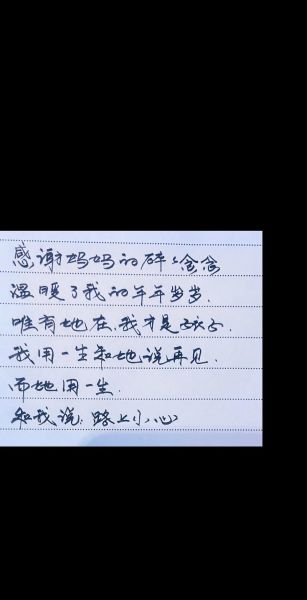 感谢妈妈的碎碎念念
温暖了我的年年岁岁.
唯有她在,我才是孩子.
我用一生和她说再见.
而她用一生.
和我说:路上小心